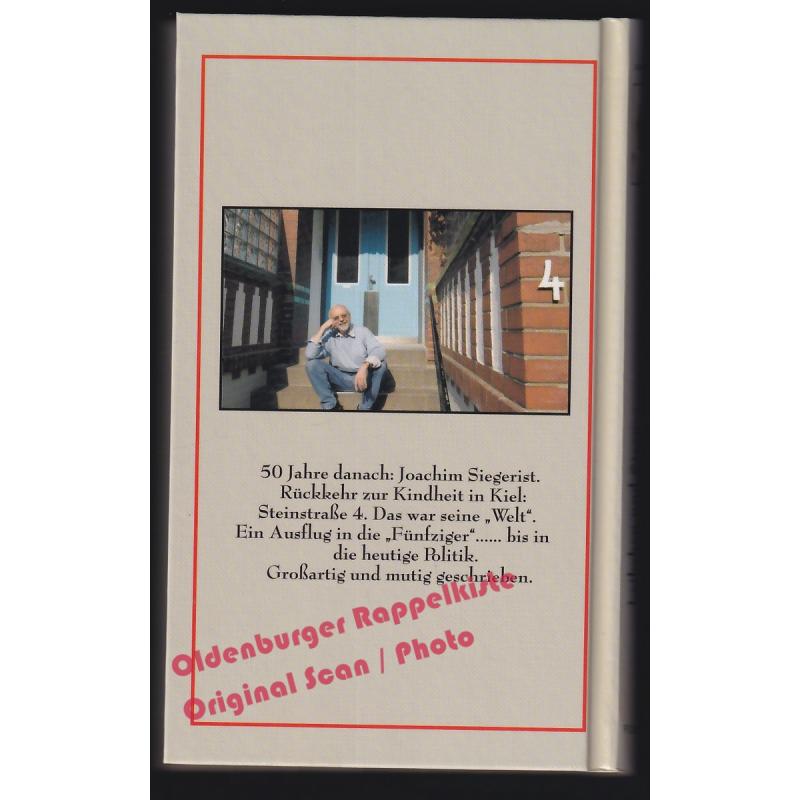 4
50 Jahre danach: Joachim Siegerist.
Rückkehr zur Kindheit in Kiel:
Steinstraße 4. Das war seine „Welt“.
Ein Ausflug in die „Fünfziger“...... bis in
die heutige Politik.
Großartig und mutig geschrieben.
Oldenburger Rappelkiste
Original Scan / Photo